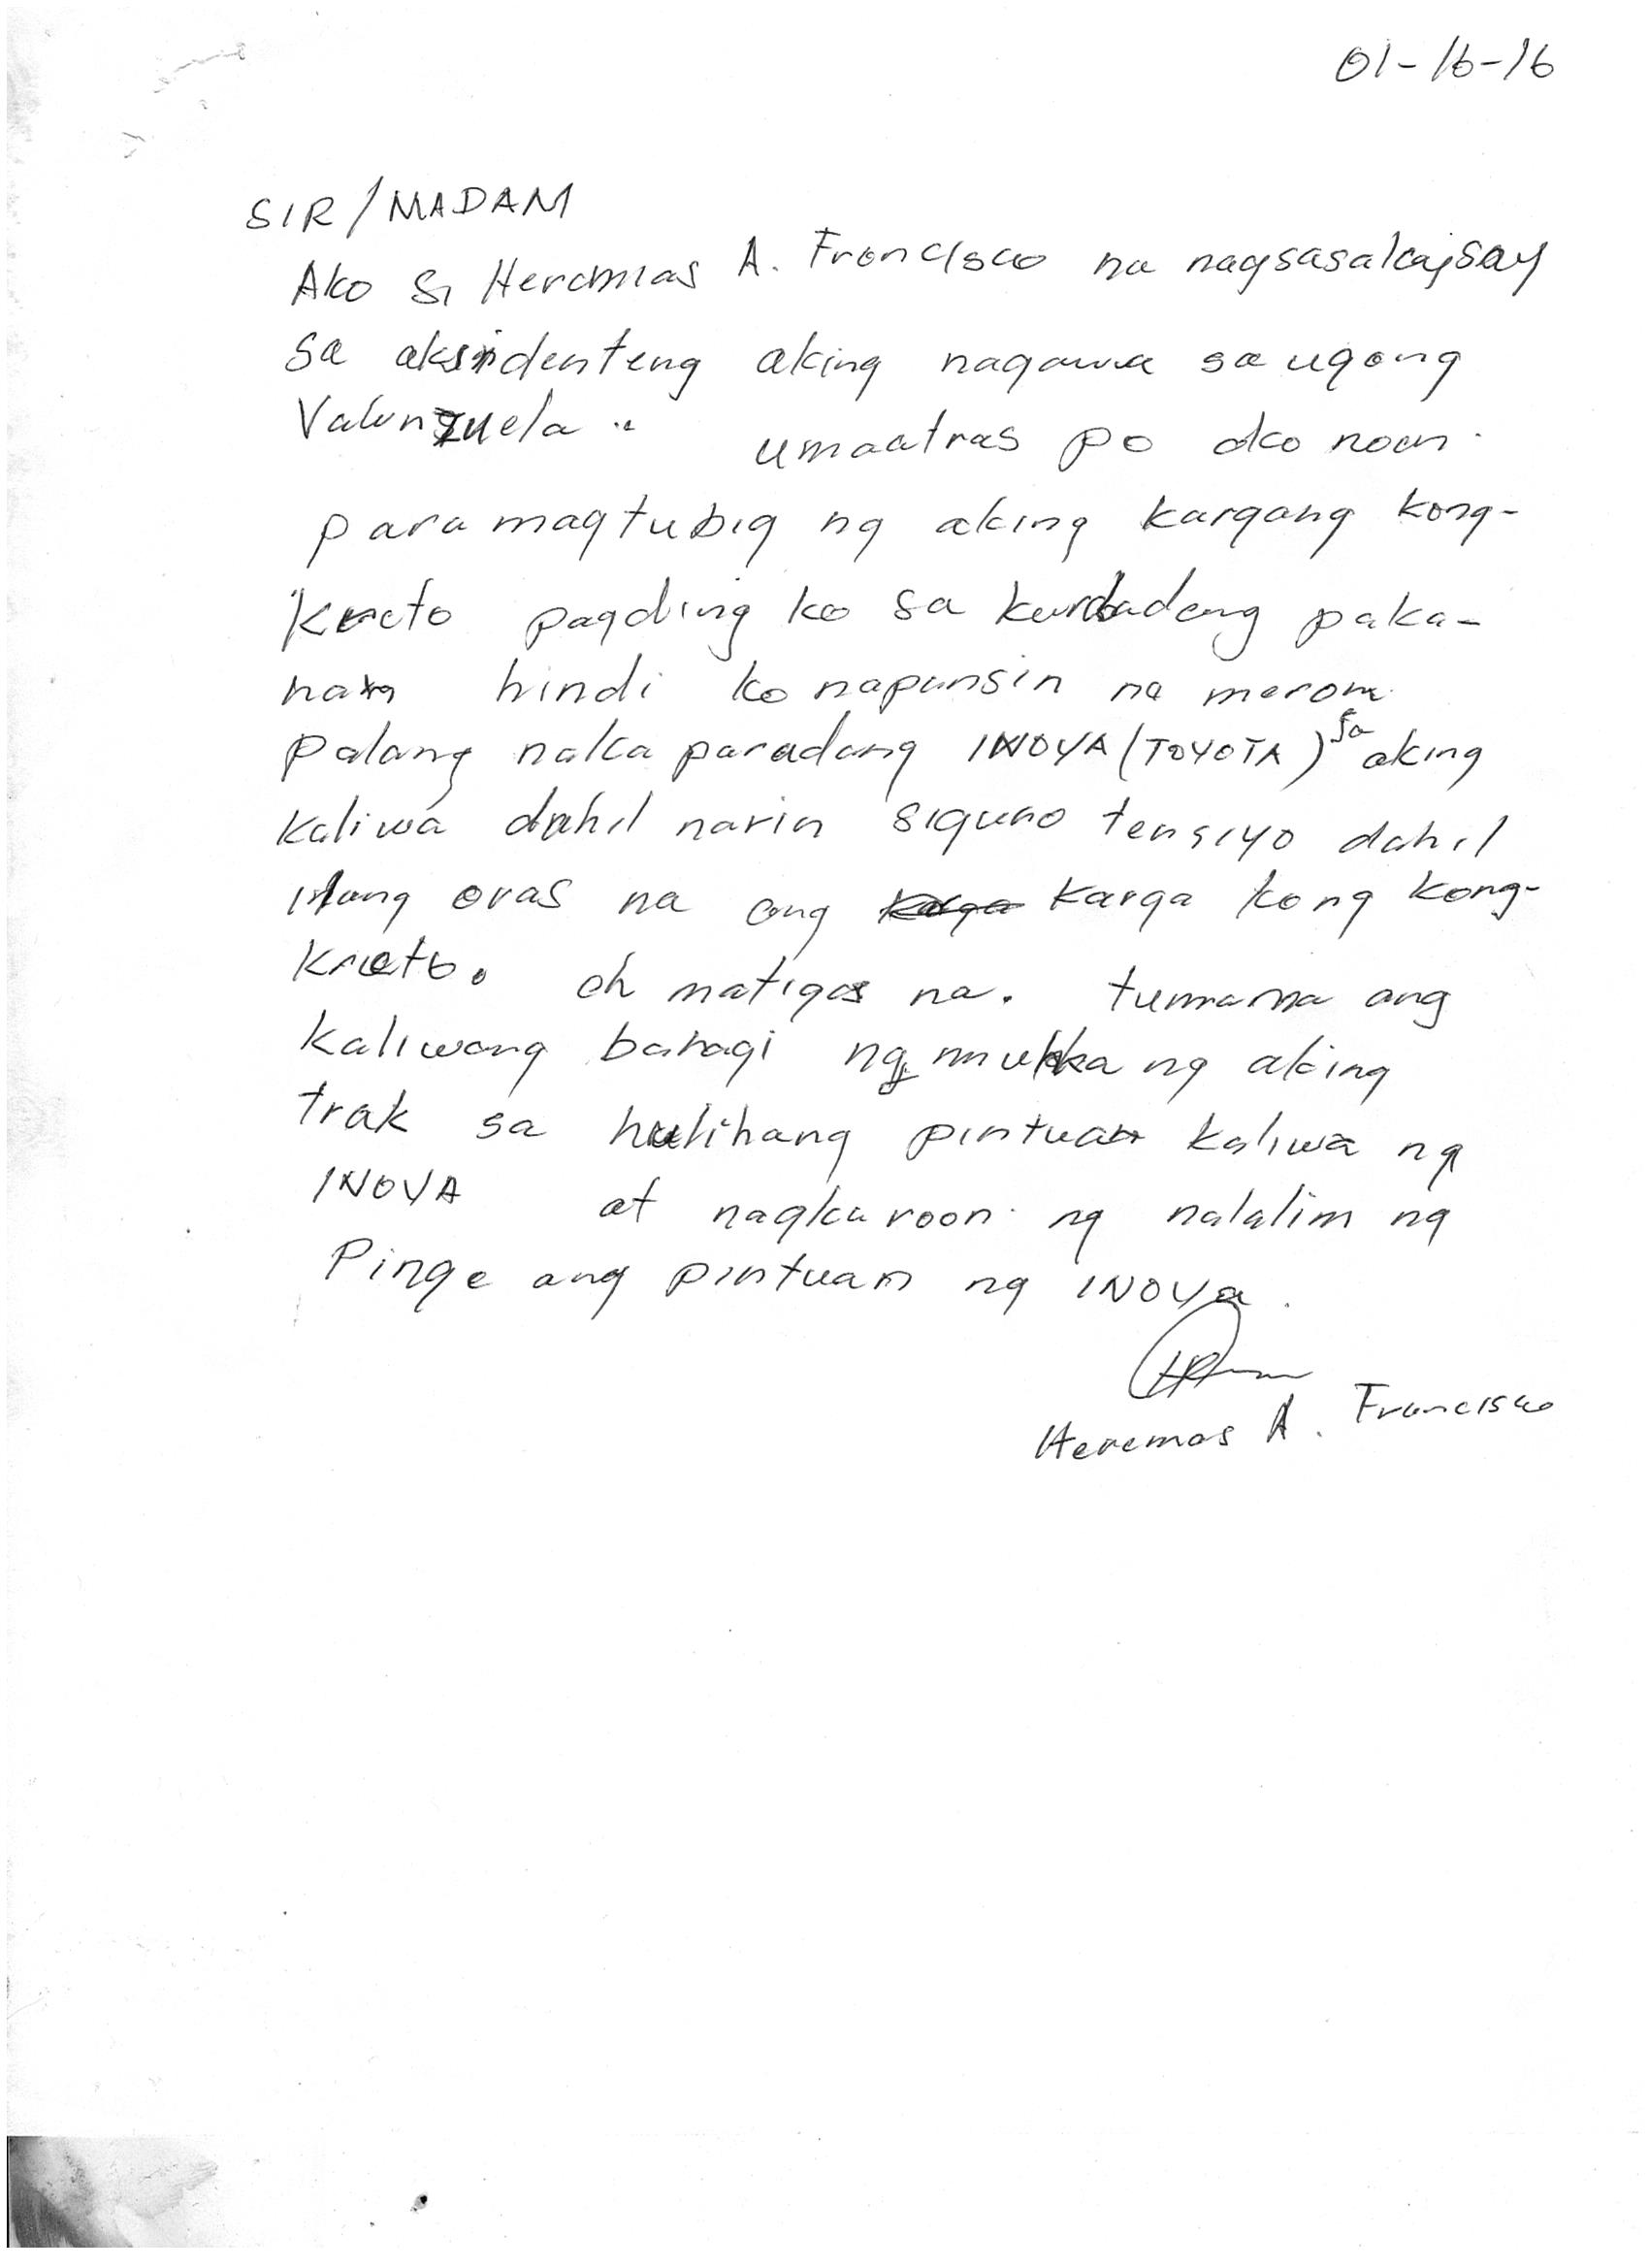 01-16-16
SIR/MADAM
Ako si Heremias A. Francisco na nagsasalaysay
sa aksidenteng aking nagawa sa ugong
Valenzuela.. umaatras po ako noon.
para magtubig ng aking kargang kong-
kreto pagding ko sa kurbadang paka-
nan hindi ko napansin na meron
palang naka paradang INOVA (TOYOTA) sa aking
kaliwa dahil narin siguro tensiyo dahil
ilang oras na ang karga kong kong-
kreto. eh matigas na. tumama ang
kaliwang bahagi ng mukha ng aking
trak sa hulihang pintuan kaliwa ng
INOVA at nagkaroon ng malalim ng
Pinge ang pintuan ng INOVA.
Heremias A. Francisco